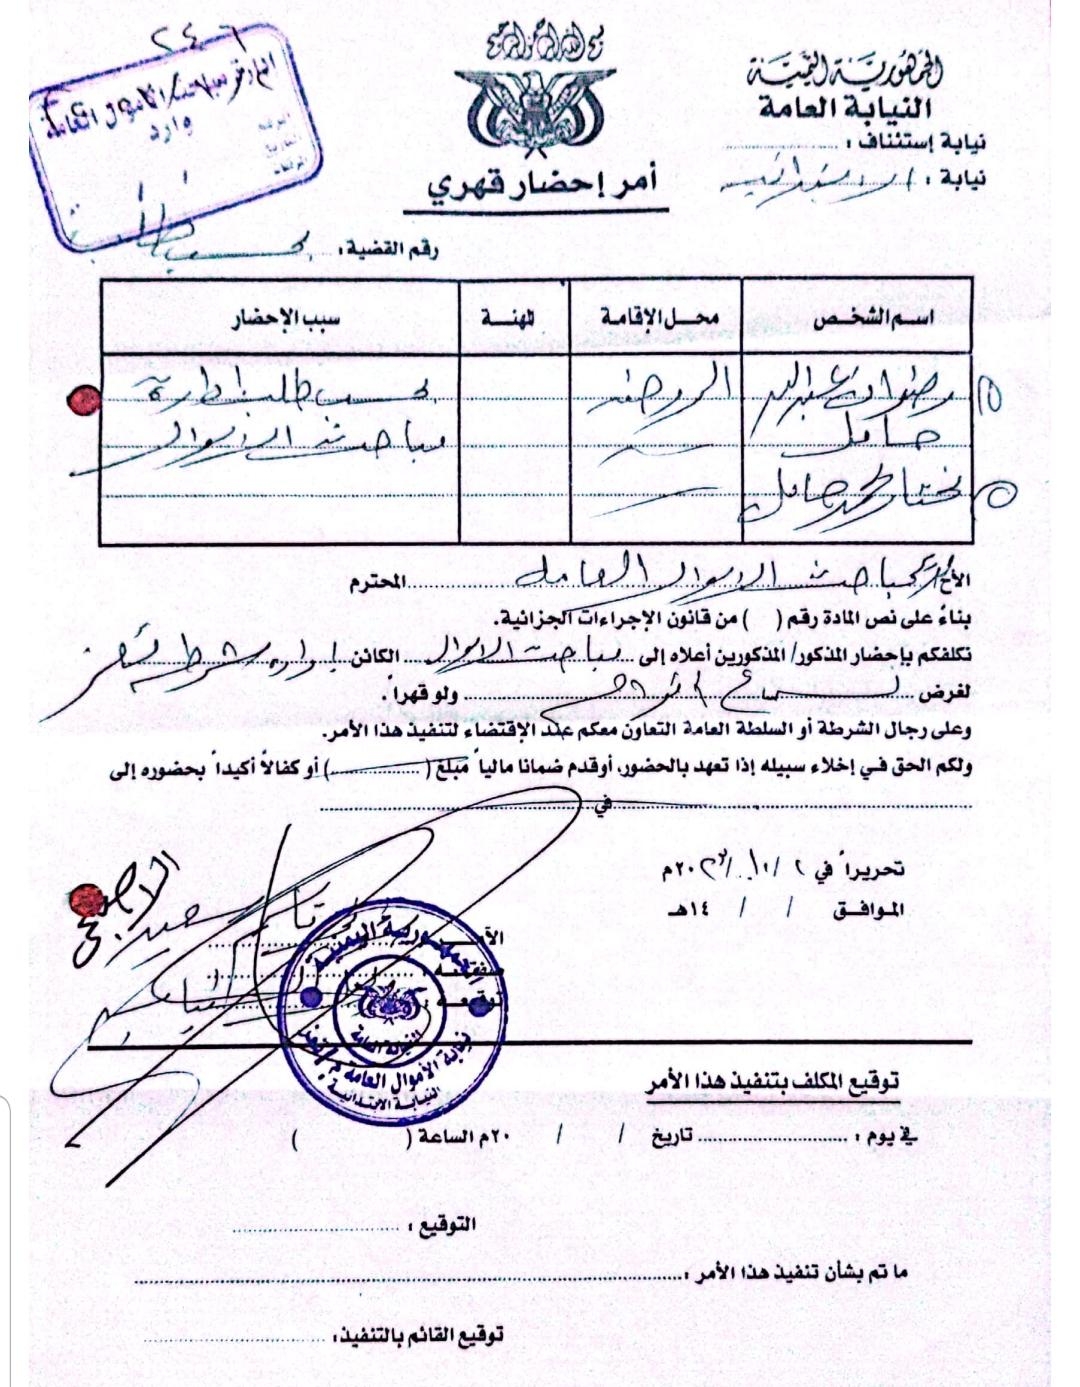 بسم الله الرحمن الرحيم
الجمهورية اليمنية
النيابة العامة
نيابة إستئناف :
نيابة : الابتدائية
٢٤٠٦
مباحث الأموال العامة
وارد
الرقم
التاريخ
المرفقات
أمر إحضار قهري
رقم القضية : بحسب طلب
اسم الشخص محل الإقامة المهنة سبب الإحضار
رضوان عبدالله الروضة بحسب طلب إدارة
حامل مباحث الاموال
مختار محمد حامل
الأخ/ مدير مباحث الاموال العامه المحترم
بناءً على نص المادة رقم ( ) من قانون الإجراءات الجزائية.
نكلفكم بإحضار المذكور/ المذكورين أعلاه إلى مباحث الاموال الكائن إداره شرطه تعز
لغرض سماع ولو قهراً.
وعلى رجال الشرطة أو السلطة العامة التعاون معكم عند الإقتضاء لتنفيذ هذا الأمر.
ولكم الحق في إخلاء سبيله إذا تعهد بالحضور، أوقدم ضمانا مالياً مبلغ ( ) أو كفالاً أكيداً بحضوره إلى
في
تحريراً في ٢ /١٠/ ٢٠٢٣م
الموافق / / ١٤هـ
الآمر
صفته :
توقيعه :
الجمهورية اليمنية
النيابة العامة
نيابة الأموال العامة م/تعز
النيابة الابتدائية
توقيع المكلف بتنفيذ هذا الأمر
في يوم : تاريخ / / ٢٠م الساعة ( )
التوقيع :
ما تم بشأن تنفيذ هذا الأمر :
توقيع القائم بالتنفيذ: